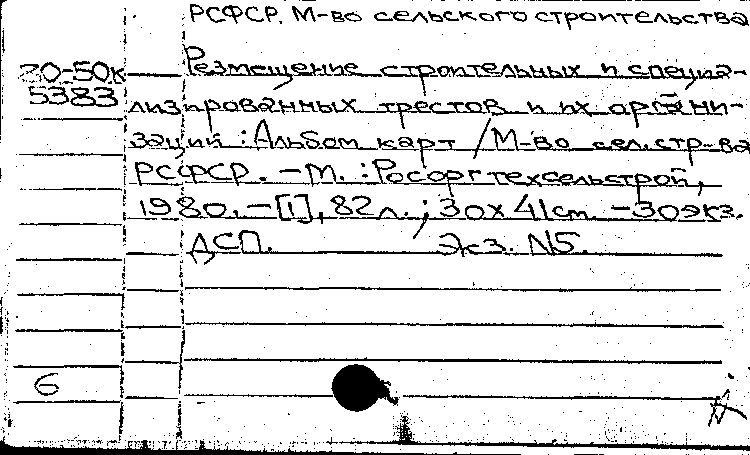 РСФСР. М-во сельского строительства
80-50к
5383
Размещение строительных и специа-
лизированных трестов и их органи-
заций : Альбом карт / М-во сел. стр-ва
РСФСР. – М. : Росоргтехсельстрой,
1980. – [1], 82 л. ; 30х41 см. – 30 экз.
ДСП. Экз. №5.
6